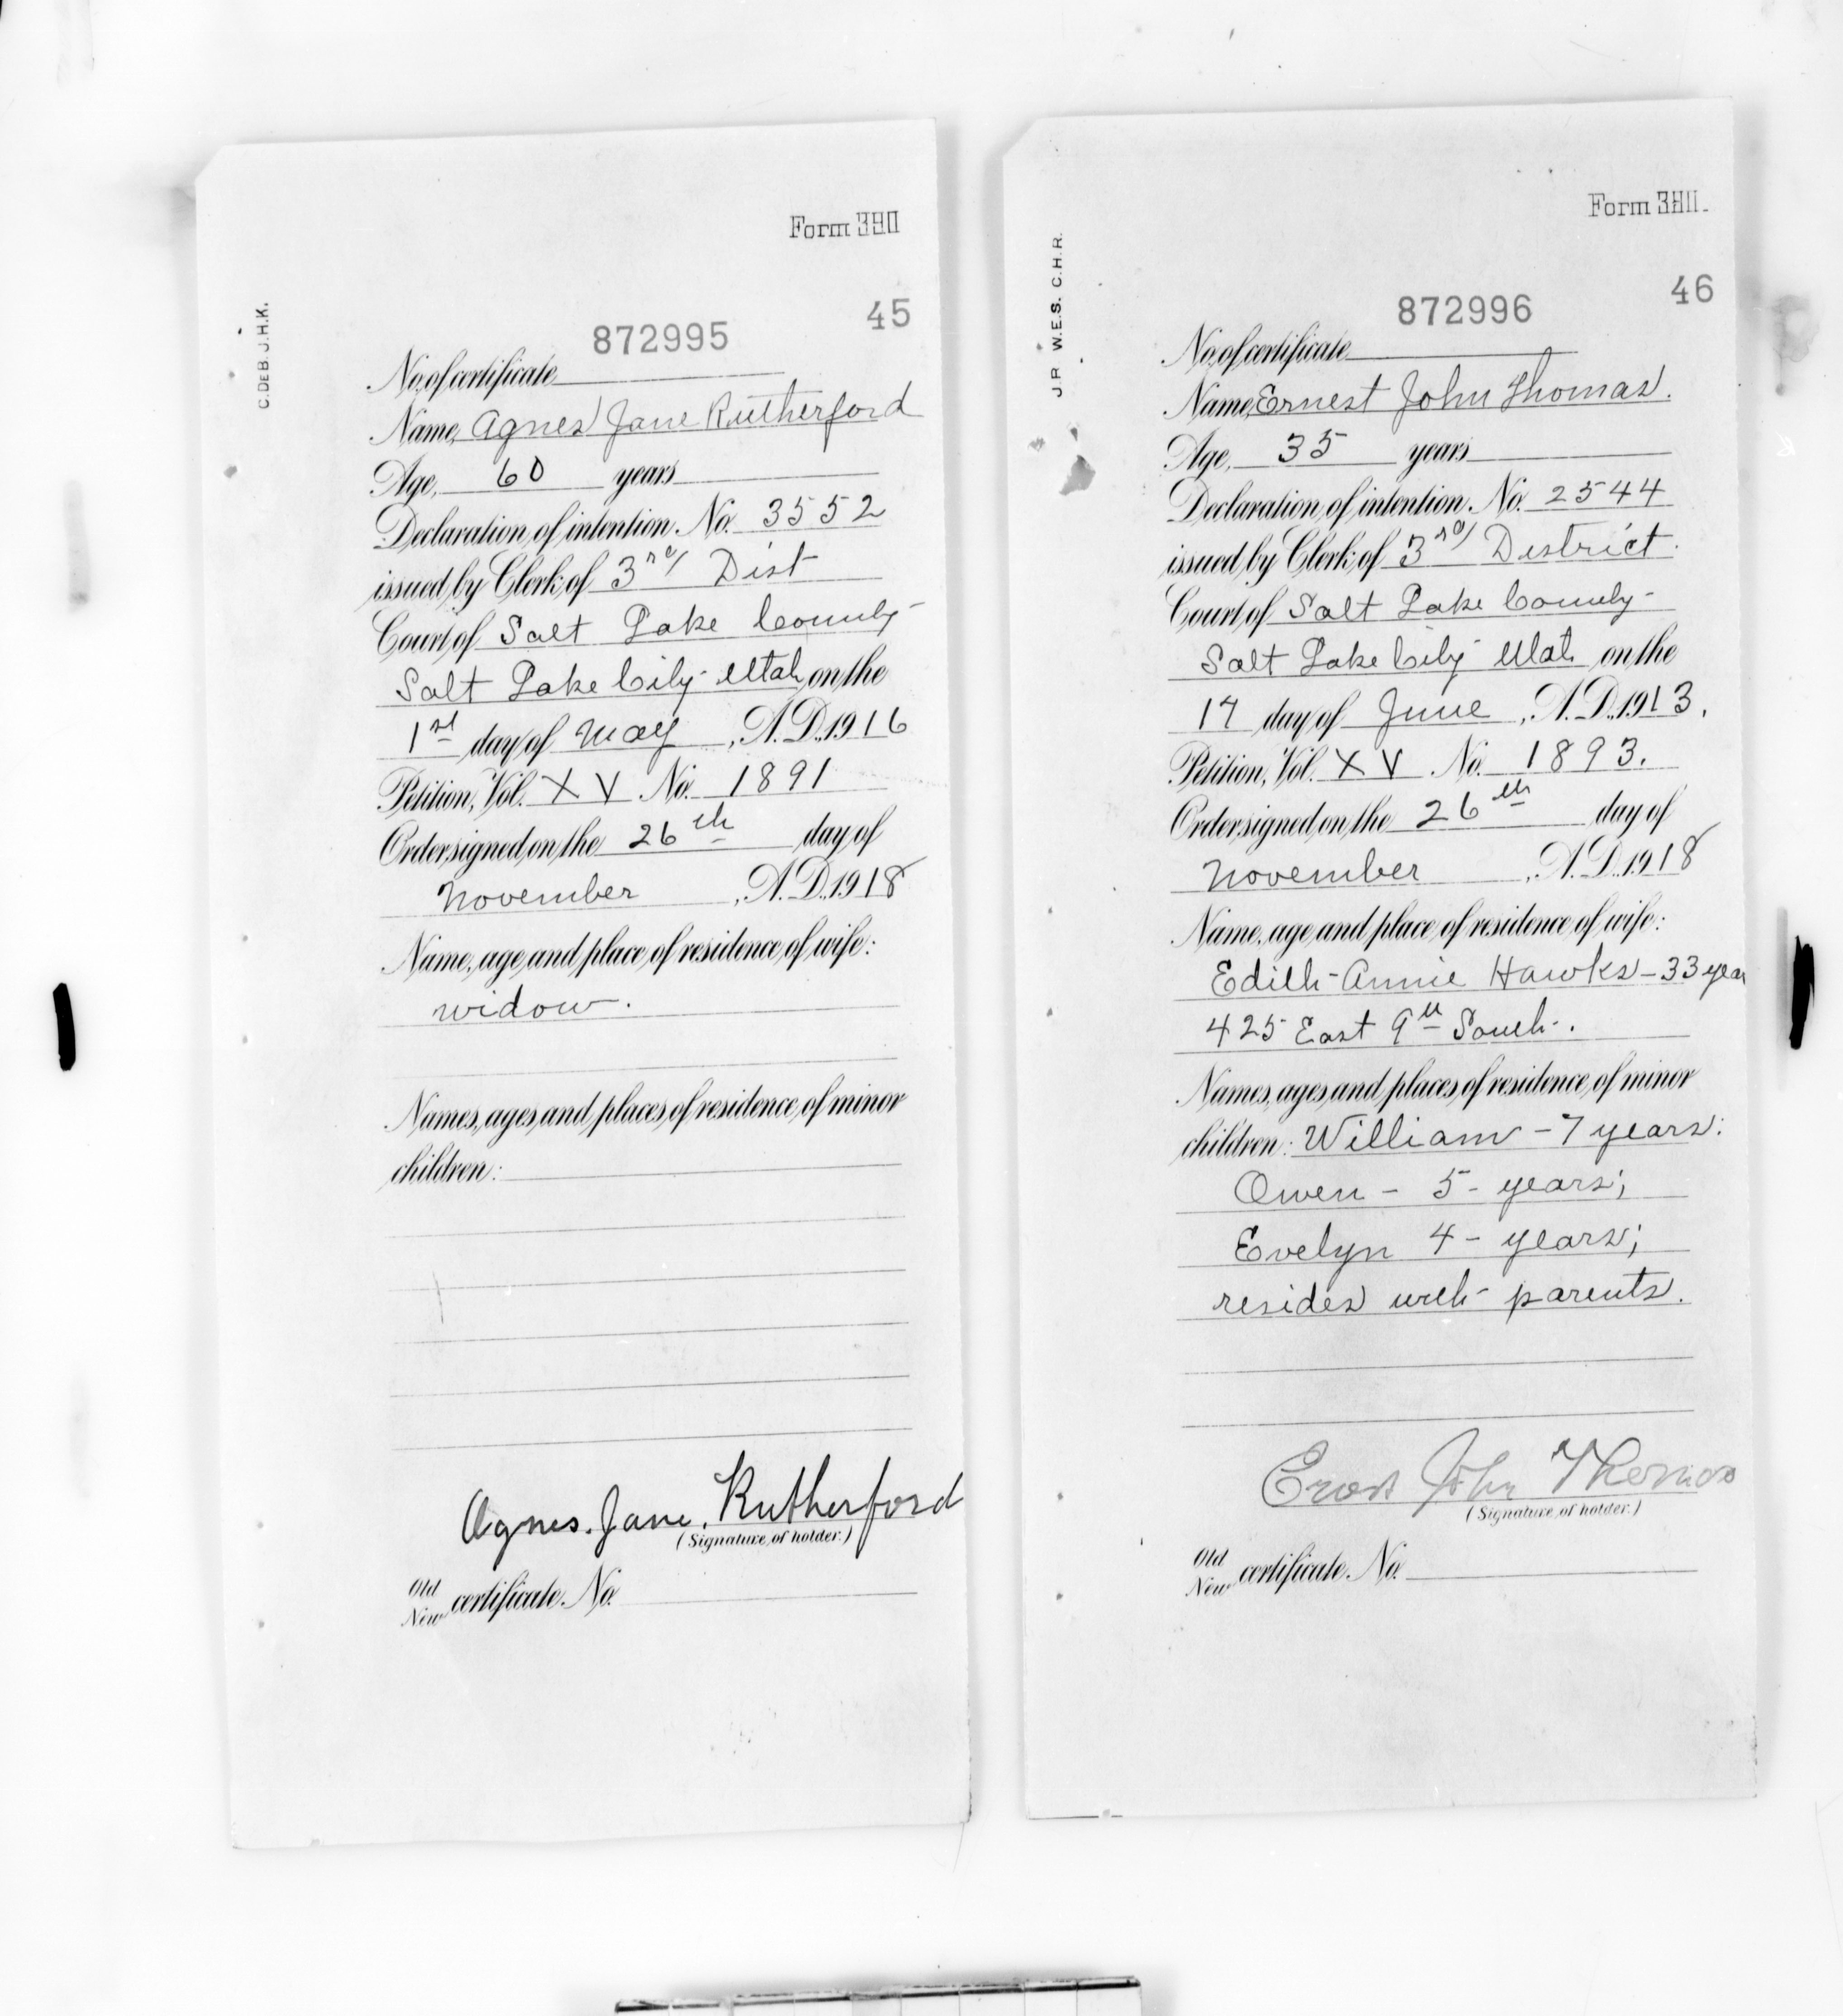 Form 380
C.DEB. J.H.K.
45
872995
No. of certificate
Name, Agnes Jane Rutherford
Age, 60 years
Declaration of intention No. 3552
issued by Clerk of 3rd Dist
Court of Salt Lake County
Salt Lake City Utah on the
1st day of May, A.D. 1916
Petition, Vol. XV No. 1891
Order signed on the 26th day of
November, A.D. 1918
Name, age and place of residence of wife:
widow.
Names, ages and places of residence of minor
children:
Agnes. Jane. Rutherford
(Signature of holder.)
Old
New certificate No.
Form
J.R. W.E.S. C.H.R.
46
872996
No. of certificate
Name, Ernest John Thomas.
Age, 35 years
Declaration of intention No. 2544
issued by Clerk of 3rd District
Court of Salt Lake County
Salt Lake City Utah on the
17 day of June, A.D. 1913.
Petition, Vol. XV No. 1893.
Order signed on the 26th day of
November, A.D. 1918
Name, age and place of residence of wife:
Edith Annie Hawks - 33 year
425 East 9th South.
Names, ages and places of residence of minor
children: William - 7 years:
Owen - 5 - years;
Evelyn 4 - years;
resides with parents.
John Thomas
(Signature of holder.)
Old
New certificate No.